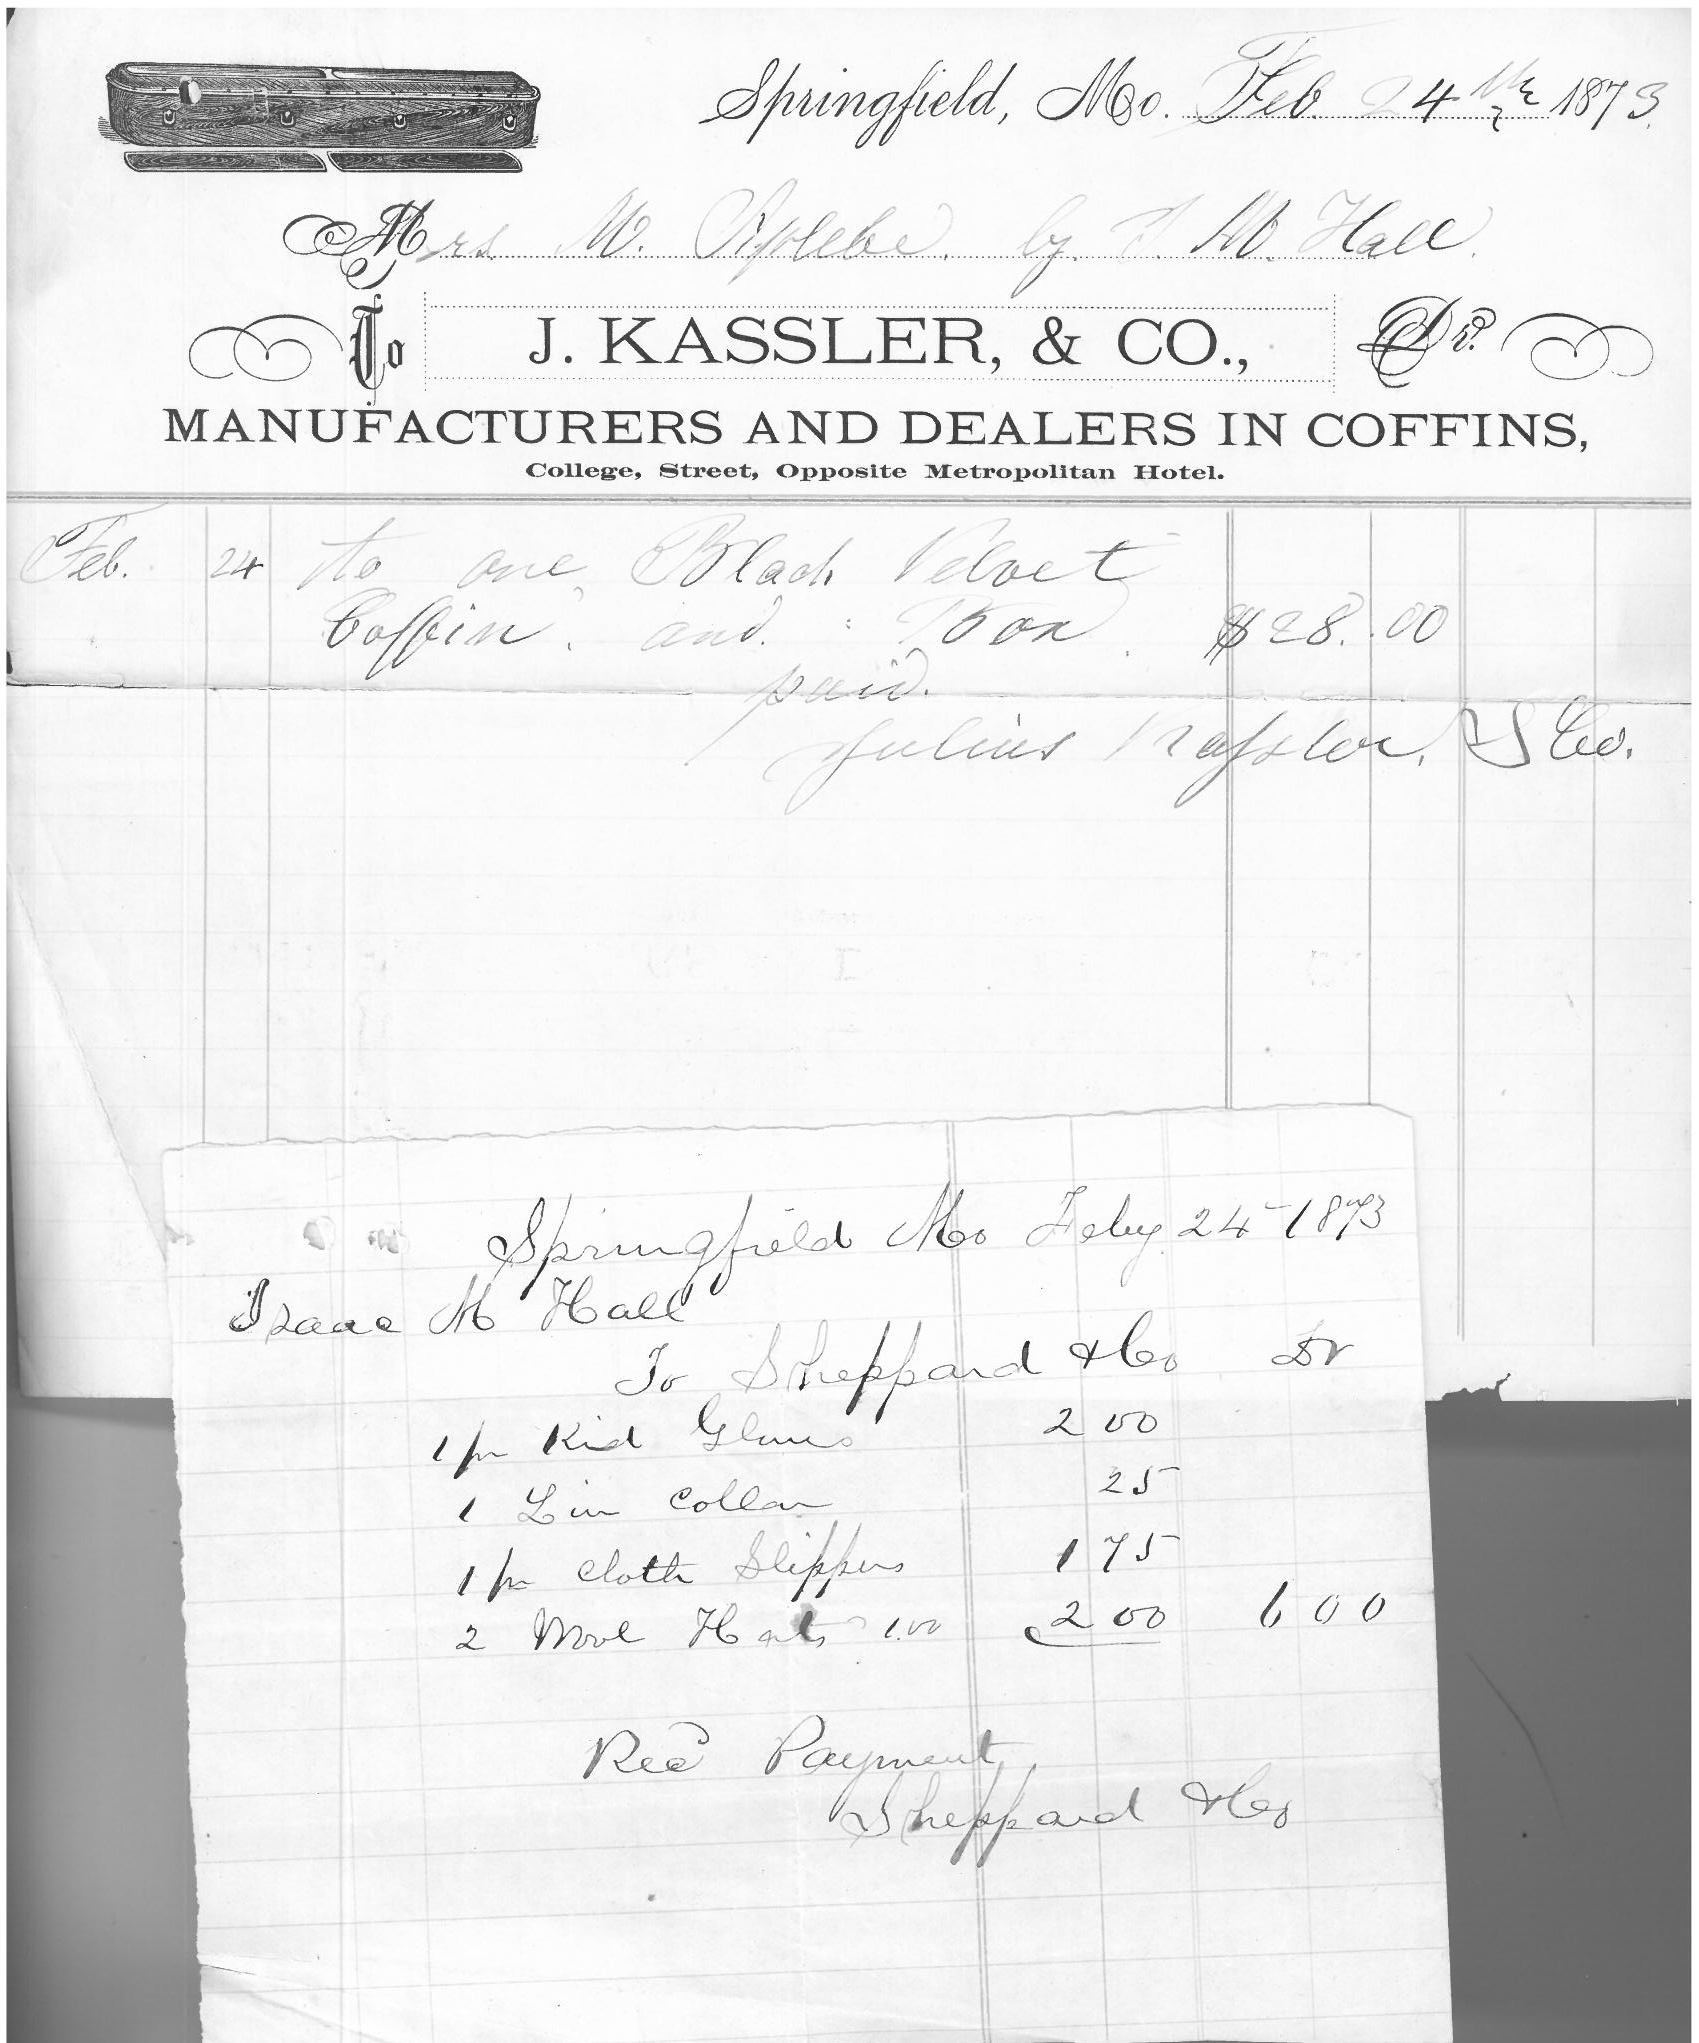 Springfield, Mo. Feb. 24th 1873.
Mrs. M. Aplebe. by. I. M. Hall.
To J. KASSLER, & CO., Dr.
MANUFACTURERS AND DEALERS IN COFFINS,
College, Street, Opposite Metropolitan Hotel.
Feb. 24 to one Black Velvet
Coffin. and. Box. $28.00
paid.
Julius Kassler, & Co.
Springfield Mo Feby 24 1873
Isaac M Hall
To Sheppard & Co Dr
1 pr Kid Gloves 2 00
1 Lin Collar 25
1 pr Cloth Slippers 1 75
2 Wool Hats 1.00 2 00 6 00
Recd Payment
Sheppard & Co